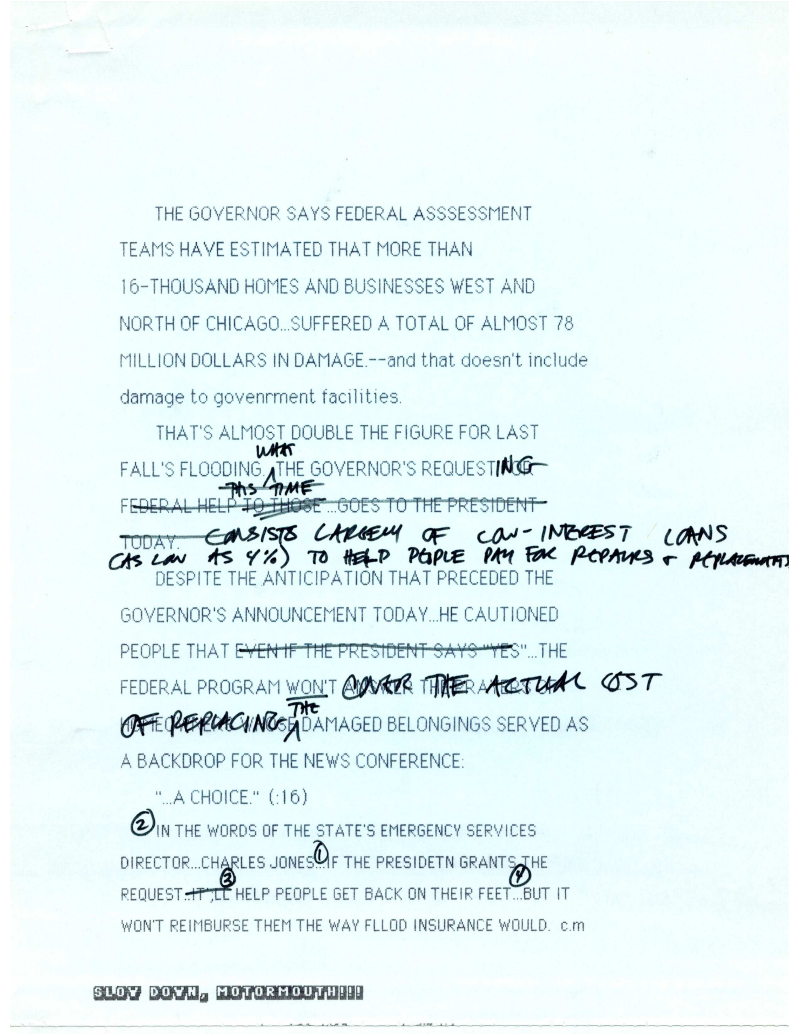 THE GOVERNOR SAYS FEDERAL ASSSESSMENT
TEAMS HAVE ESTIMATED THAT MORE THAN
16-THOUSAND HOMES AND BUSINESSES WEST AND
NORTH OF CHICAGO...SUFFERED A TOTAL OF ALMOST 78
MILLION DOLLARS IN DAMAGE.--and that doesn't include
damage to govenrment facilities.
THAT'S ALMOST DOUBLE THE FIGURE FOR LAST
WHAT
FALL'S FLOODING. THE GOVERNOR'S REQUESTING
THIS TIME
FEDERAL HELP TO THOSE...GOES TO THE PRESIDENT
TODAY. CONSISTS LARGELY OF LOW-INTEREST LOANS
(AS LOW AS 4%) TO HELP PEOPLE PAY FOR REPAIRS + REPLACEMENTS
DESPITE THE ANTICIPATION THAT PRECEDED THE
GOVERNOR'S ANNOUNCEMENT TODAY...HE CAUTIONED
PEOPLE THAT EVEN IF THE PRESIDENT SAYS "YES"...THE
FEDERAL PROGRAM WON'T COVER THE ACTUAL COST
THE
OF REPLACING DAMAGED BELONGINGS SERVED AS
A BACKDROP FOR THE NEWS CONFERENCE:
"...A CHOICE." (:16)
2 IN THE WORDS OF THE STATE'S EMERGENCY SERVICES
DIRECTOR...CHARLES JONES...1 IF THE PRESIDETN GRANTS THE
REQUEST...IT ;LL 3 HELP PEOPLE GET BACK ON THEIR FEET 4...BUT IT
WON'T REIMBURSE THEM THE WAY FLLOD INSURANCE WOULD. c.m
SLOW DOWN, MOTORMOUTH!!!